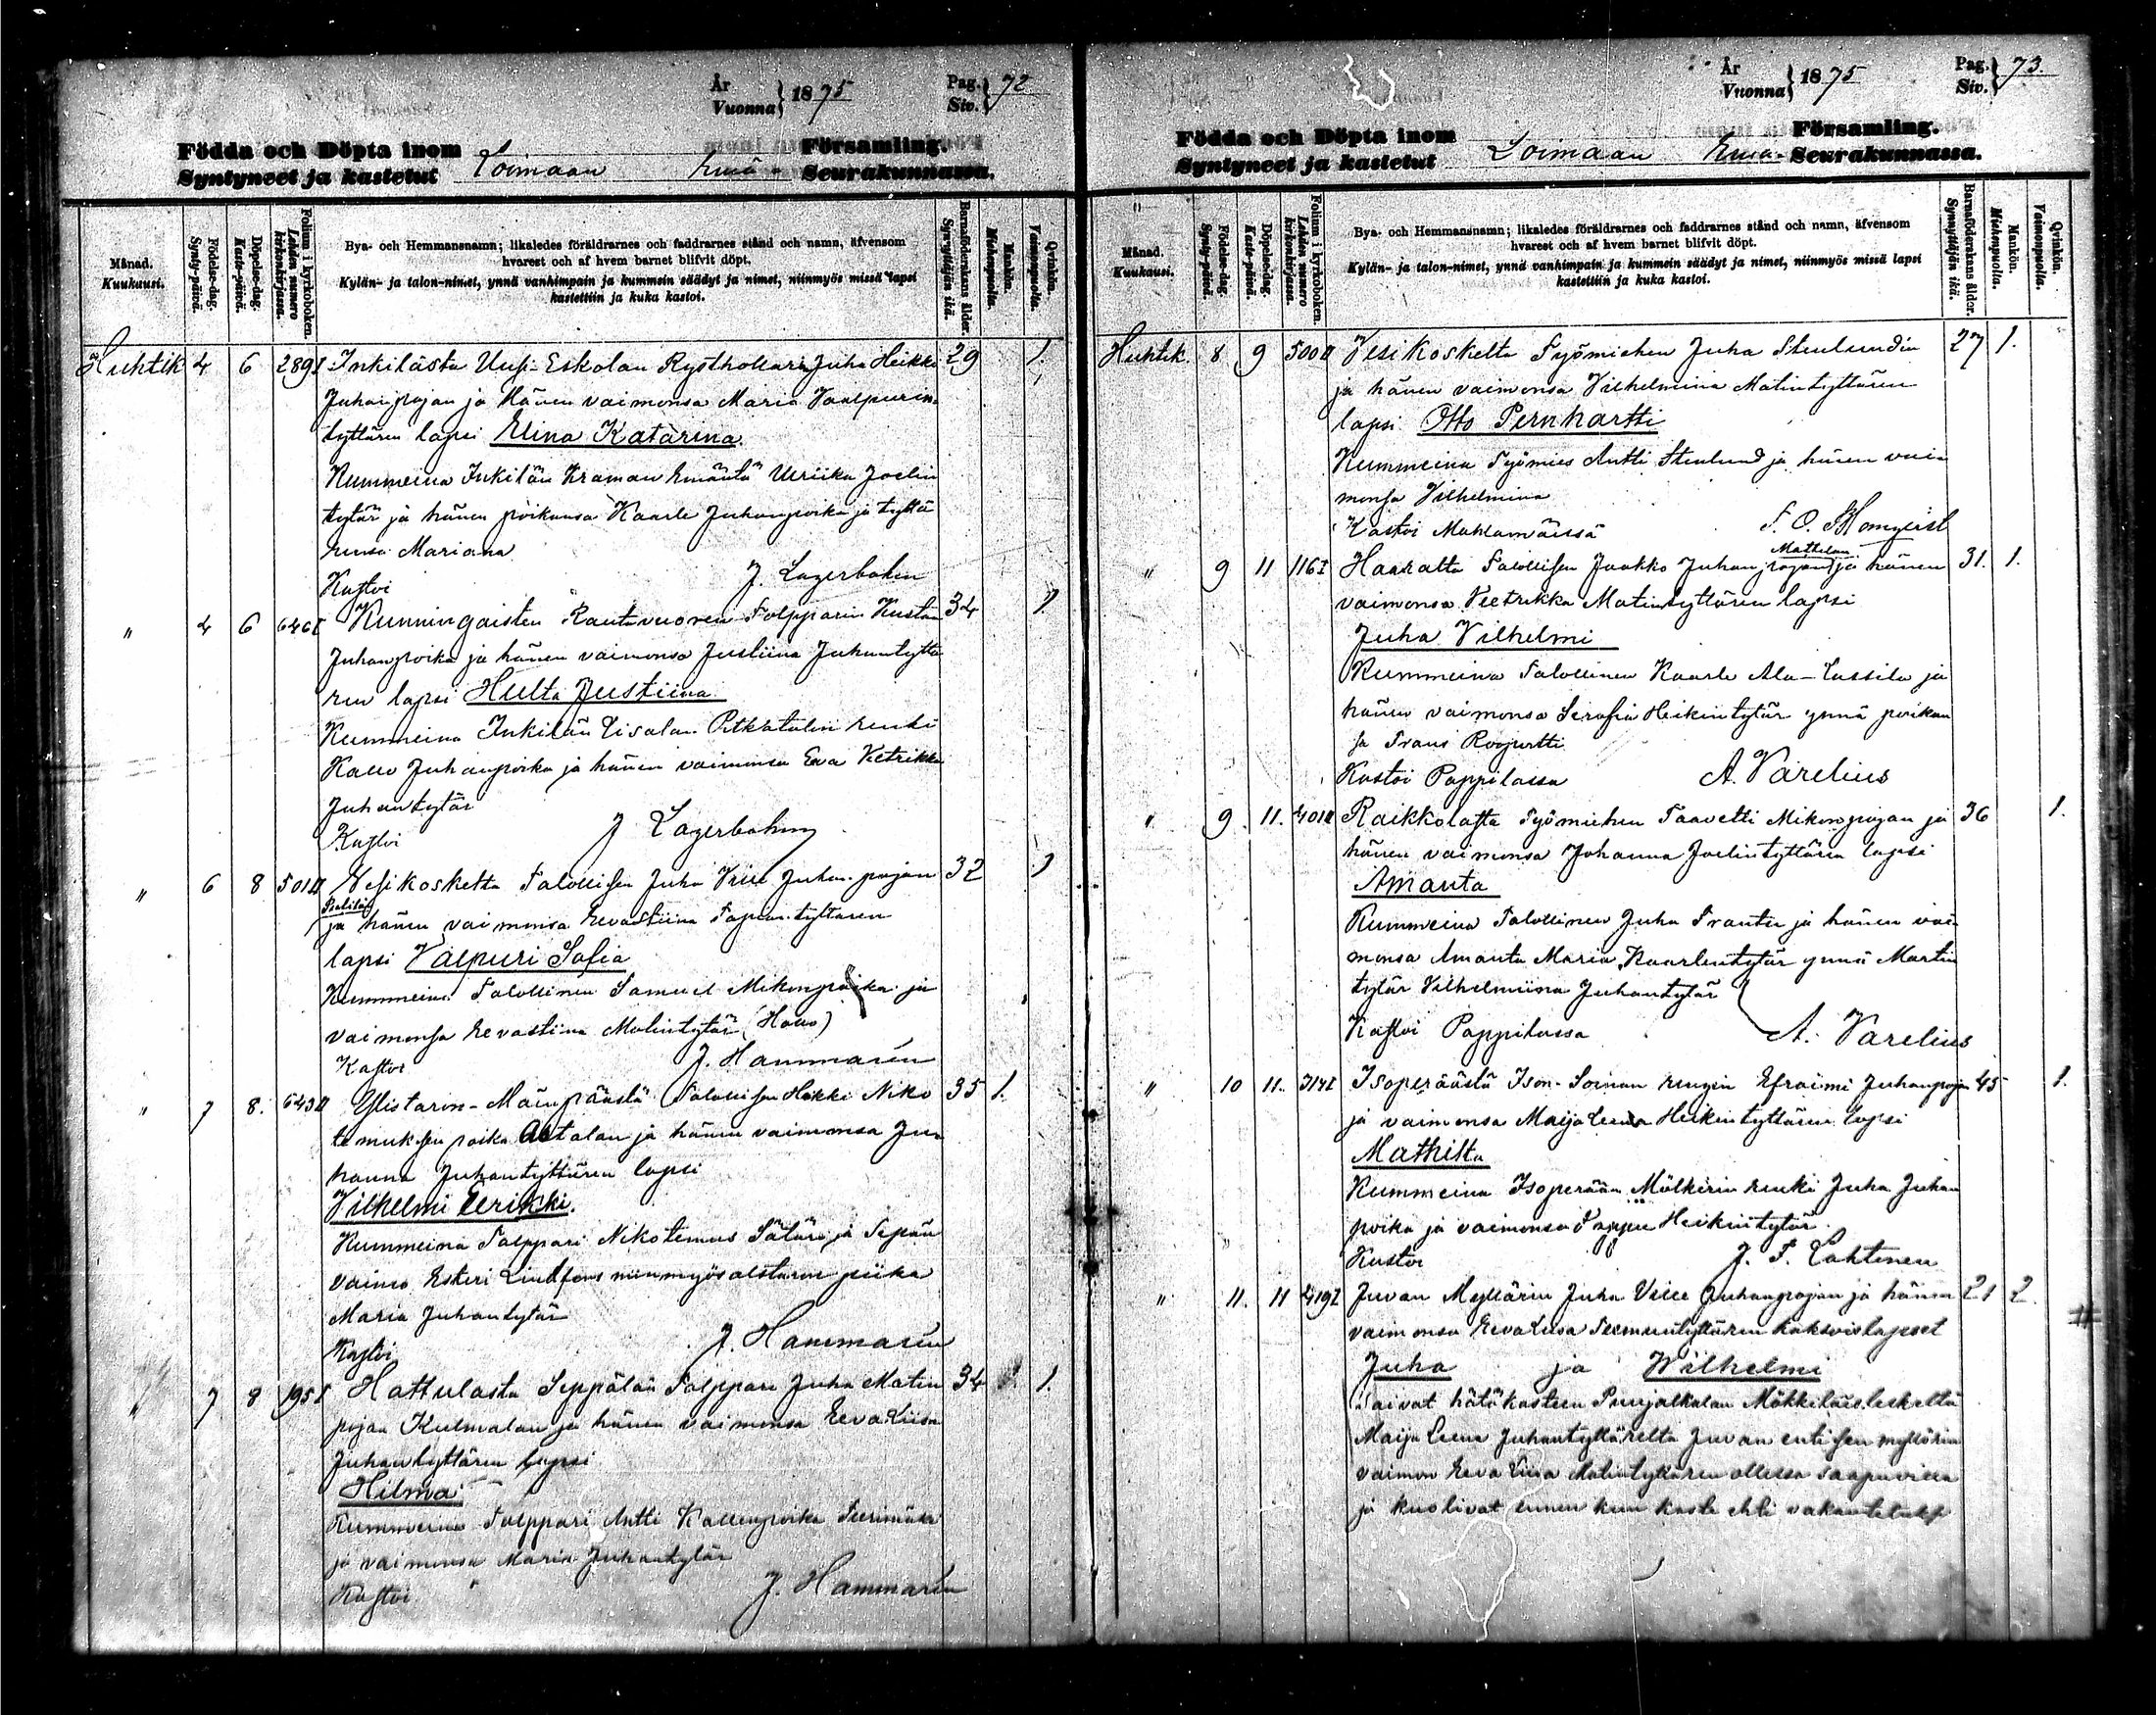 År
Vuonna } 1875
Pag.
Siv. } 72
Födda och Döpta inom
Syntyneet ja kastetut
Loimaan Emä-
Församling.
Seurakunnassa.
Månad.
Kuukausi.
Födelse-dag.
Synty-päivä.
Döpelse-dag.
Kaste-päivä.
Folium i kyrkoboken.
Lehden numero kirkonkirjassa.
Bya- och Hemmansnamn; likaledes föräldrarnes och faddrarnes stånd och namn, äfvensom
hvarest och af hvem barnet blifvit döpt.
Kylän- ja talon-nimet, ynnä vanhimpain ja kummein säädyt ja nimet, niinmyös missä lapsi
kastettiin ja kuka kastoi.
Barnaföderskans ålder.
Synnyttäjän ikä.
Mankön.
Miehenpuolia.
Qvinkön.
Vaimonpuolia.
Huhtik 4 6 289I Inkilästä Uusi-Eskolan Rusthollarin Juha Heikki 29 1.
Juhanpojan ja hänen vaimonsa Maria Vaalpurin
tyttären lapsi Elina Katarina.
Kummeina Inkilän Kraman emäntä Ulriika Joelin
tytär ja hänen poikansa Kaarle Juhanpoika ja tyttä
rensa Mariana
Kastoi J. Lagerbohm
" 4 6 646I Kunningaisten Rautavuoren Talpparin Kustaa 34 1
Juhanpoika ja hänen vaimonsa Justiina Juhantyttä
ren lapsi Hulta Justiina
Kummeina Inkilän Pitkätalon renki
Kalle Juhanpoika ja hänen vaimonsa Eva Vetrikka
Juhantytär
Kastoi J Lagerbohm
" 6 8 501II Vesikoskelta Talollisen Juha Ville Juhanpojan 32 1
ja hänen vaimonsa Eevastiina Tapanityttären
lapsi Valpuri Sofia
Kummeina Talollinen Samuel Mikonpoika ja
vaimonsa Eevastiina Matintytär
Kastoi J. Hammarén
" 7 8. 643II Ylistaron-Mäenpäästä Talollisen Heikki Niko 35 1.
temuksen poika Alatalan ja hänen vaimonsa Jo
hanna Juhantyttären lapsi
Vilhelmi Eerikki.
Kummeina Talppari Nikotemus Sätäri ja Sepän
vaimo Esteri Lindfors niinmyös piika
Maria Juhantytär
Kastoi J. Hammarén
" 7 8 195I Hattulasta Seppälän Talppari Juha Matin 34 1.
pojan Kulmalan ja hänen vaimonsa Eeva Liisa
Juhantyttären lapsi
Hilma
Kummeina Talppari Antti Kallenpoika
ja vaimonsa Maria Juhantytär
Kastoi J. Hammarén
År
Vuonna } 1875
Pag.
Siv. } 73.
Födda och Döpta inom
Syntyneet ja kastetut
Loimaan Emä-
Församling.
Seurakunnassa.
Månad.
Kuukausi.
Födelse-dag.
Synty-päivä.
Döpelse-dag.
Kaste-päivä.
Folium i kyrkoboken.
Lehden numero kirkonkirjassa.
Bya- och Hemmansnamn; likaledes föräldrarnes och faddrarnes stånd och namn, äfvensom
hvarest och af hvem barnet blifvit döpt.
Kylän- ja talon-nimet, ynnä vanhimpain ja kummein säädyt ja nimet, niinmyös missä lapsi
kastettiin ja kuka kastoi.
Barnaföderskans ålder.
Synnyttäjän ikä.
Mankön.
Miehenpuolia.
Qvinkön.
Vaimonpuolia.
Huhtik. 8 9 500II Vesikoskelta Työmiehen Juha Stenlundin 27 1.
ja hänen vaimonsa Vilhelmina Matintyttären
lapsi Otto Pernhartti
Kummeina Työmies Antti Stenlund ja hänen vai
monsa Vilhelmina
Kastoi Mahlamäissä F. O. Blomqvist
Mattelan
" 9 11 116I Haaralta Talollisen Jaakko Juhanpojan ja hänen 31. 1.
vaimonsa Vetrikka Matintyttären lapsi
Juha Vilhelmi
Kummeina Talollinen Kaarle Ala-Lassila ja
hänen vaimonsa Serafia Heikintytär ynnä poikan
sa Frans Roopertti
Kastoi Pappilassa A. Varelius
" 9. 11. 401II Raikkolasta Työmiehen Taavetti Mikonpojan ja 36 1.
hänen vaimonsa Johanna Joelintyttären lapsi
Amanta
Kummeina Talollinen Juha Frantsi ja hänen vai
monsa Amanta Maria Kaarlentytär ynnä Martin
tytär Vilhelmiina Juhantytär
Kastoi Pappilassa A. Varelius
" 10 11. 314I Isoperäästä Ison-Soinan rengin Efraimi Juhanpojan 45 1.
ja vaimonsa Maija Leena Heikintyttären lapsi
Mathilta
Kummeina Isoperään Mälkerin renki Juha Juhan
poika ja vaimonsa Heikintytär.
Kastoi J. F. Lahtinen
" 11. 11 419I Juvan Myllärin Juha Ville Juhanpojan ja hänen 21 2.
vaimonsa Eeva Liisa Teemuntyttären kaksoislapset
Juha ja Wilhelmi
Saivat hätäkasteen Puujalkalan Mökkiläis leskeltä
Maija Leena Juhantyttäreltä Juvan entisen myllärin
vaimon Eeva Liisa Matintyttären ollessa saapuvilla
ja kuolivat ennen kun kaste ehti vakuutetuksi